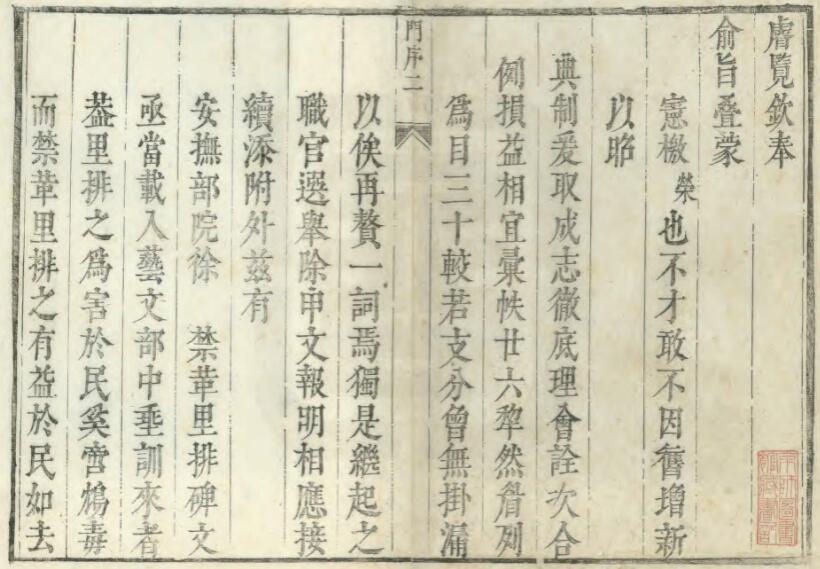 睿覽欽奉
俞旨叠蒙
憲檄榮也不才敢不因舊增新
以昭
典制爰取成志徹底理會詮次合
例損益相宜彙帙廿六犂然眉列
爲目三十較若支分曾無掛漏
門序二
以俟再贅一詞焉獨是繼起之
職官選舉除申文報明相應接
續添附外兹有
安撫部院徐 禁革里排碑文
亟當載入藝文部中垂訓來者
葢里排之爲害於民奚啻鴆毒
而禁革里排之有益於民如去